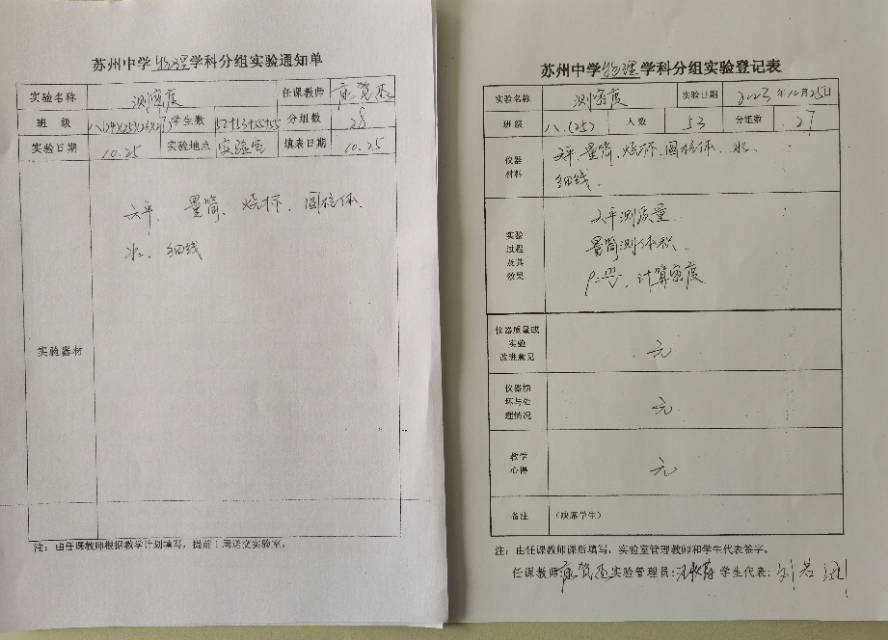 苏州中学物理学科分组实验通知单
实验名称 测密度 任课教师
班 级 学生数 分组数 28
实验日期 10.25 实验地点 实验室 填表日期 10.25
天平、量筒、烧杯、圆柱体、
水、细线
实验器材
注:由任课教师根据教学计划填写,提前1周送交实验室。
苏州中学物理学科分组实验登记表
实验名称 测密度 实验日期 2023年10月25日
班级 八.(25) 人数 53 分组数 27
仪器
材料
天平、量筒、烧杯、圆柱体、水、
细线.
实验
过程
及其
效果
天平测质量
量筒测体积.
计算密度
仪器质量或
实验
改进意见
无
仪器损
坏与处
理情况
无
教学
心得
无
备注 (缺席学生)
注:由任课教师课后填写,实验室管理教师和学生代表签字。
任课教师: 实验管理员: 学生代表: